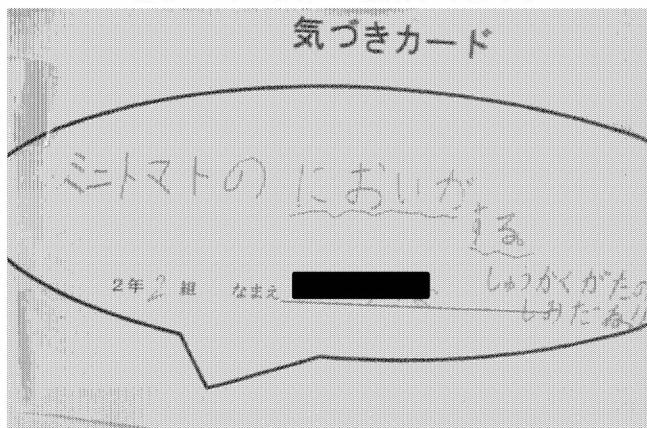 気づきカード
ミニトマトの においが
する。
2年 2 組 なまえ
しゅうかくがたの
しみだね!!